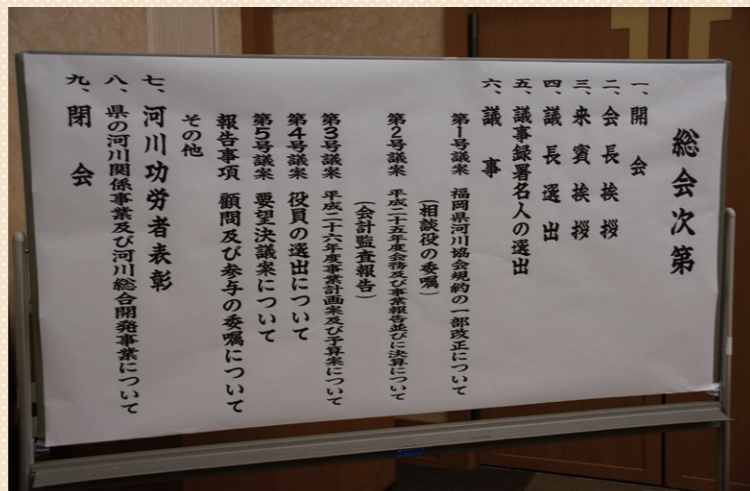 総会次第
一、開会
二、会長挨拶
三、来賓挨拶
四、議長選出
五、議事録署名人の選出
六、議事
第1号議案 福岡県河川協会規約の一部改正について
(相談役の委嘱)
第2号議案 平成二十五年度会務及び事業報告並びに決算について
(会計監査報告)
第3号議案 平成二十六年度事業計画案及び予算案について
第4号議案 役員の選出について
第5号議案 要望決議案について
報告事項 顧問及び参与の委嘱について
その他
七、河川功労者表彰
八、県の河川関係事業及び河川総合開発事業について
九、閉会